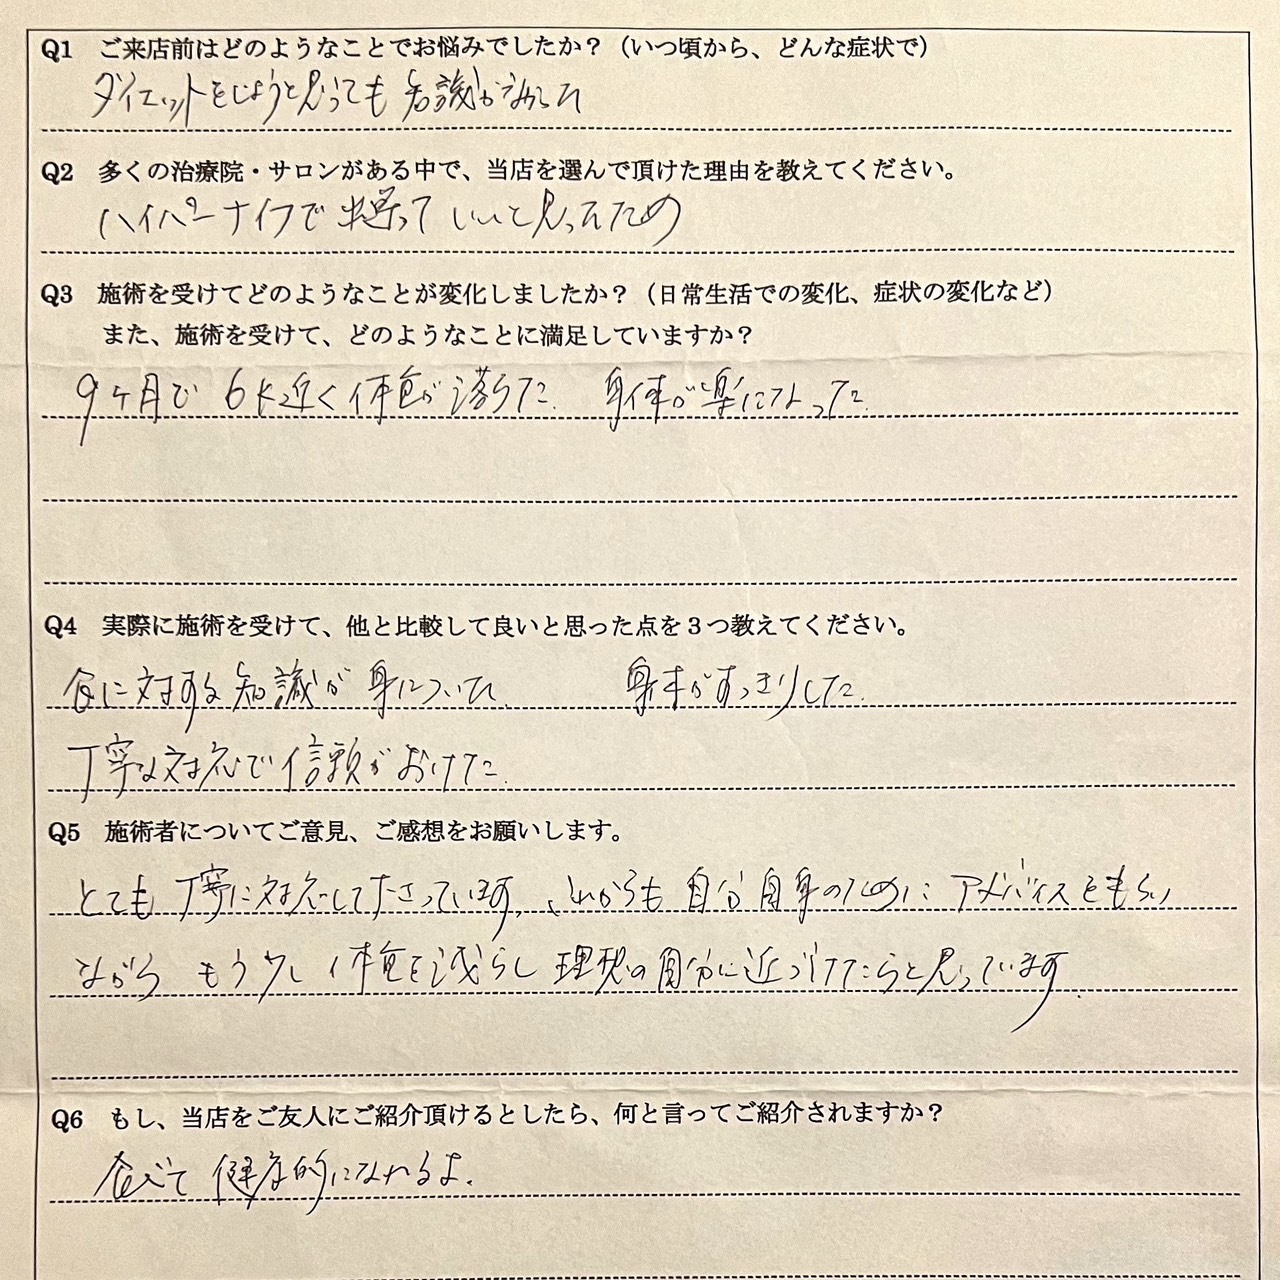 Q1 ご来店前はどのようなことでお悩みでしたか？（いつ頃から、どんな症状で）
ダイエットをしようと思っても 知識がなかった
Q2 多くの治療院・サロンがある中で、当店を選んで頂けた理由を教えてください。
ハイパーナイフで 通って いいと思ったため
Q3 施術を受けてどのようなことが変化しましたか？（日常生活での変化、症状の変化など）
また、施術を受けて、どのようなことに満足していますか？
9ヶ月で 6k近く体重が落ちた. 身体が楽になった.
Q4 実際に施術を受けて、他と比較して良いと思った点を３つ教えてください。
食に対する知識が身についた 身体がすっきりした.
丁寧な対応で信頼がおけた.
Q5 施術者についてご意見、ご感想をお願いします。
とても丁寧に対応して下さっています. これからも自分自身のために アドバイスをもらい
ながら もう少し体重を減らし理想の自分に近づけたらと思っています.
Q6 もし、当店をご友人にご紹介頂けるとしたら、何と言ってご紹介されますか？
食べて 健康的になれるよ.